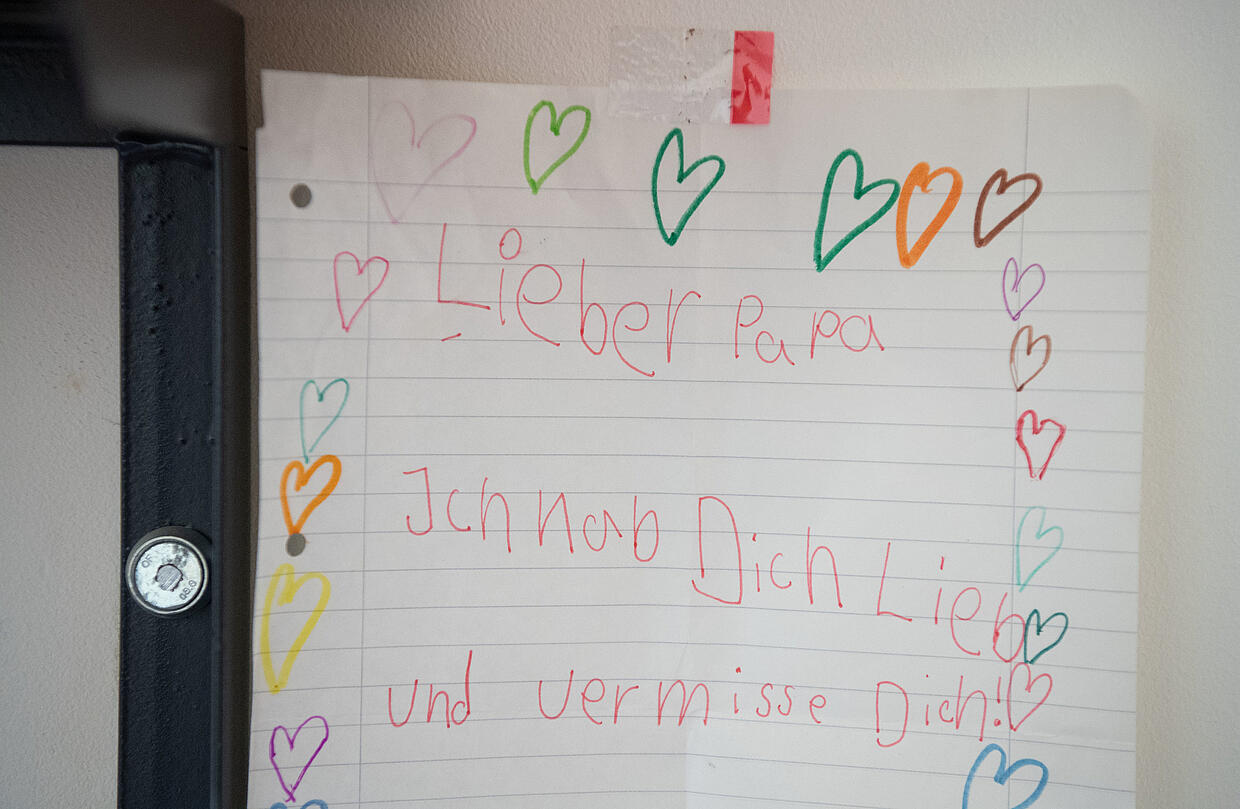 Lieber Papa
Ich hab Dich Lieb
und vermisse Dich!